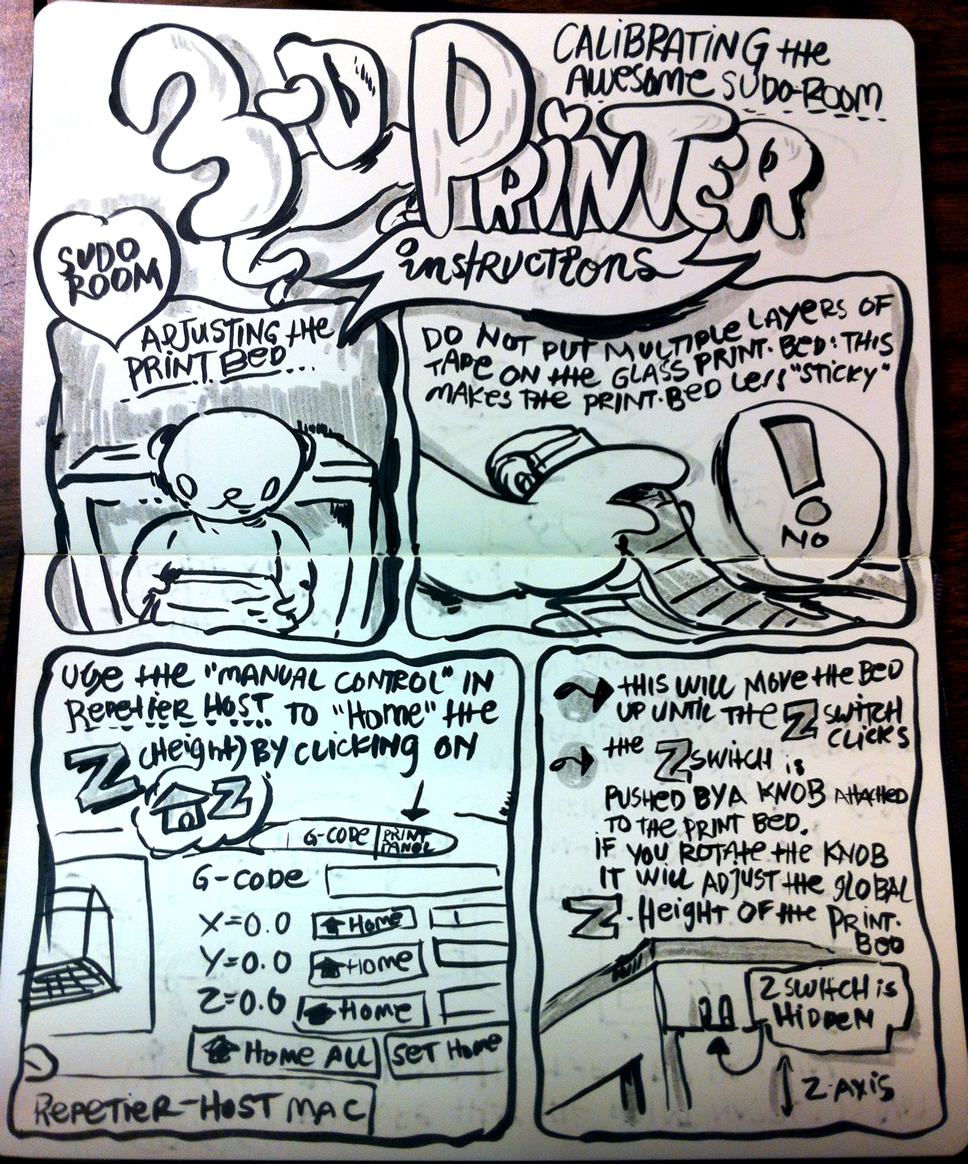 3-D PRINTER
CALIBRATING the
AWESOME SUDO-ROOM
instructions
SUDO
ROOM
ADJUSTING the
PRINT BED...
DO NOT PUT MULTIPLE LAYERS OF
TAPE ON the GLASS PRINT-BED: THIS
MAKES THE PRINT-BED Less "STICKY"
!
NO
USe the "MANUAL CONTROL" IN
RepeTIER HOST TO "Home" the
Z (HeigHt) BY CLICKING ON
Z
G-CODE PRINT
PANEL
G-CODE
X=0.0 Home
Y=0.0 Home
Z=0.0 Home
Home ALL SET Home
REPETIER-HOST MAC
THIS WILL MOVE the BED
UP UNTIL the Z SWITCH
CLICKS
the Z SWITCH is
PUSHED BY A KNOB ATTACHED
TO THE PRINT BED.
IF YOU ROTATE the KNOB
IT WILL ADJUST the GLOBAL
Z-Height OF the PRINT-
BED
Z SWITCH is
HIDDEN
Z-AXIS